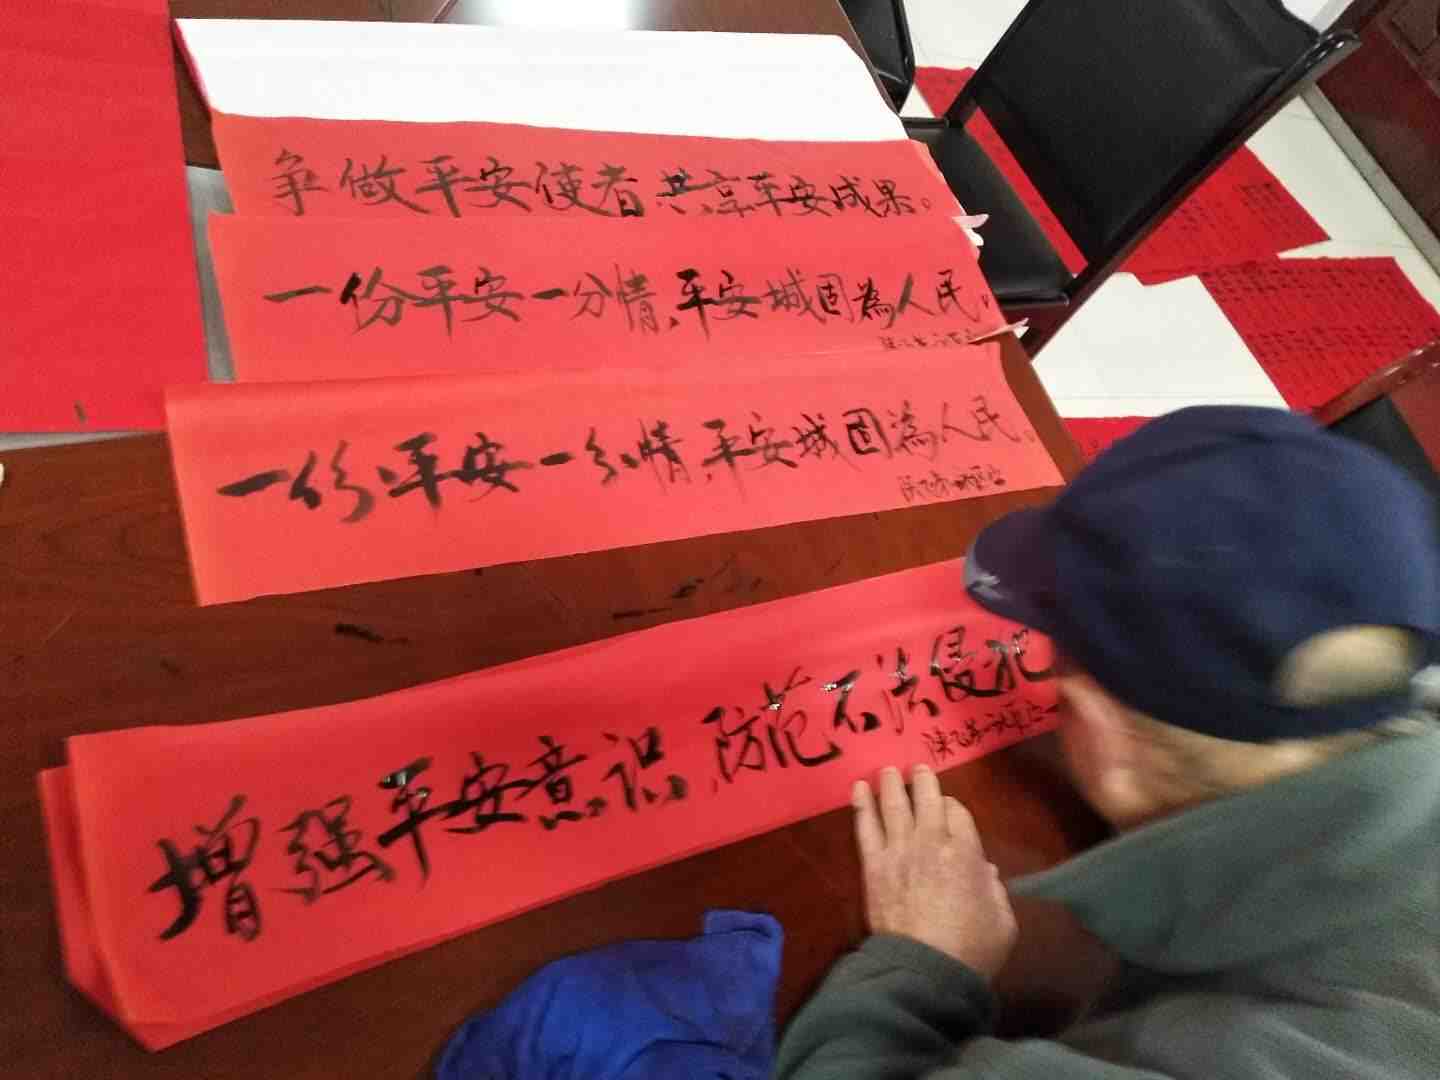 争做平安使者共享平安成果。
一份平安一分情,平安城固為人民。
一份平安一分情,平安城固為人民。
增强平安意识,防范不法侵犯